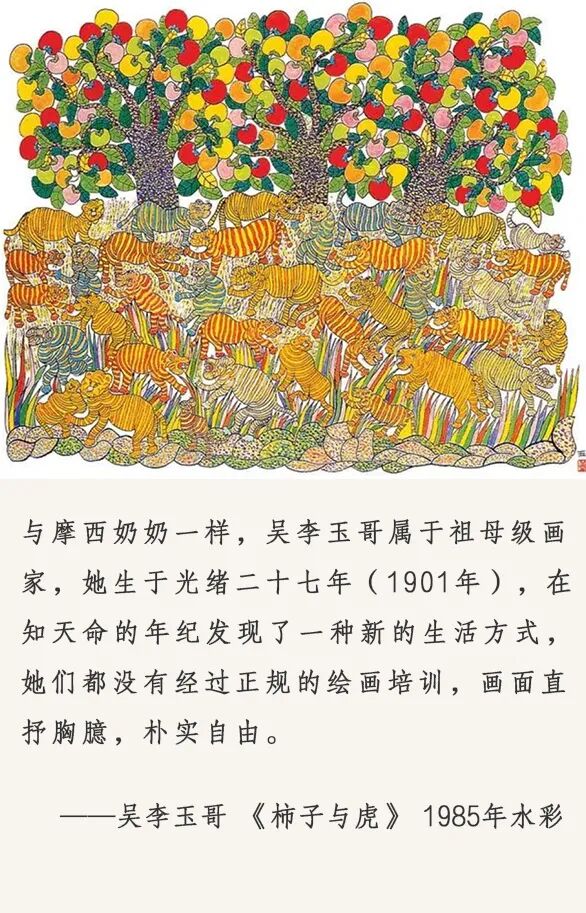 与摩西奶奶一样，吴李玉哥属于祖母级画
家，她生于光绪二十七年（1901年），在
知天命的年纪发现了一种新的生活方式，
她们都没有经过正规的绘画培训，画面直
抒胸臆，朴实自由。
——吴李玉哥 《柿子与虎》 1985年水彩